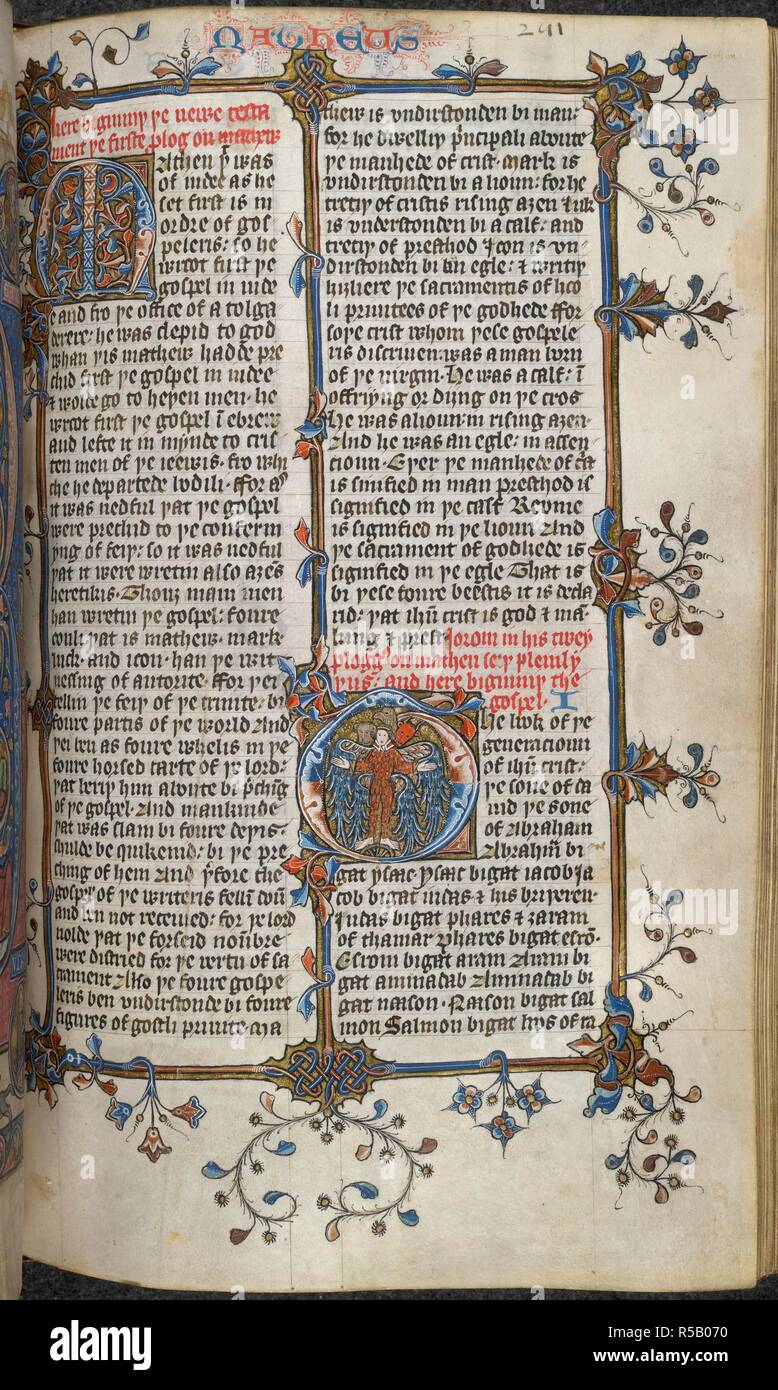 Matheus
241
here bigynniþ þe newe testa
ment þe firste plog on mathew
Matheu þt was
of iudee as he
set first is in
ordre of gos
peleris: so he
wroot first þe
gospel in iude
e and fro þe office of a tolga
derere: he was clepid to god
whan þis mathew hadde pre
chid first þe gospel in iudee
& wolde go to heþen men· he
wroot first þe gospel ī ebrew
and lefte it in mynde to cris
ten men of þe ieewis· fro whi
che he departede bodili· ffor as
it was nedful þat þe gospel
were prechid to þe conferm
yng of feiþ: so it was nedful
þat it were writun also aȝes
heretikis· Thouȝ many men
han writun þe gospel: foure
oonli þat is mathew· mark·
luck· and ioon· han þe wit
nessing of autorite· ffor þei
tellin þe feiþ of þe trinite· bi
foure partis of þe world And
þei ben as foure whelis in þe
foure horsed carte of þe lord:
þat beriþ him aboute bi p̄ching
of þe gospel· And mankinde
þat was slain bi foure deþis:
schulde be quikenid: bi þe pre
ching of hem And þfore the
gospels of þe writeris fellū doū
and ben not received: for þe lord
nolde þat þe forseid noūbre
were distried for þe vertu of sa
crament Also þe foure gospe
leris ben undirstonde bi foure
figures of gostli priuite· Ma
theu is undirstonden bi man:
for he dwelliþ p̄ncipali aboute
þe manhede of crist· mark is
undirstonden bi a lioun: for he
tretiþ of cristis rising aȝen Luk
is understonden bi a calf: and
tretiþ of presthod Joon is un
dirstonden bi an egle: & writiþ
hiȝliere þe sacramentis of hoo
li priuitees of þe godhede ffor
soþe crist whom þese gospele
ris discriuen: was a man born
of þe virgin· He was a calf: ī
offriyng or diyng on þe cros
He was a lioun: in rising aȝen·
And he was an egle: in assen
cioun· Eþer þe manhede of c͛st
is signified in man presthod is
signified in þe calf Rewme
is signified in þe lioun And
þe sacrament of godhede is
signified in þe egle That is
bi þese foure beestis it is decla
rid: þat ihū crist is god & mā·
& king & prest Jerom in his twey
plogg' on matheu seþ pleinly
þus: and here bigynniþ the
gospel· I
The book of þe
generacioun
of ihū crist:
þe sone of da
uid þe sone
of Abraham
Abrahā bi
gat ysaac Ysaac bigat iacob Ja
cob bigat iudas & his briþeren·
Judas bigat phares & zaram
of thamar Phares bigat esrō·
Esrom bigat aram Aram bi
gat aminadab Aminadab bi
gat naason· Naason bigat sal
mon Salmon bigat boos of ra
alamy
Image ID: R5B070
www.alamy.com